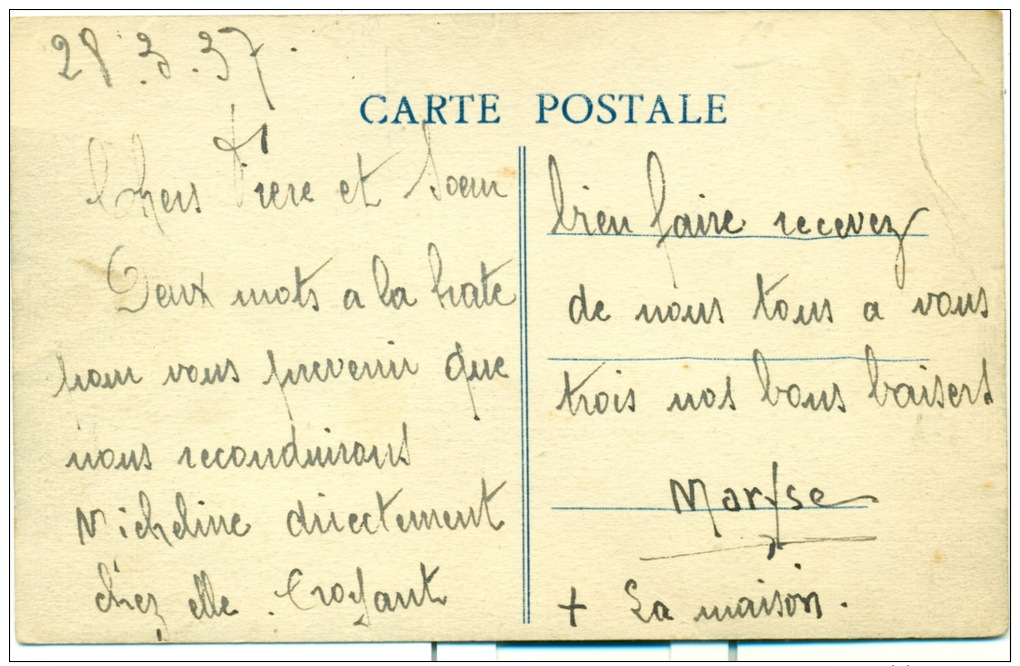 28.3.37.
CARTE POSTALE
Chers Frere et Soeur
Deux mots a la hate
pour vous prevenir que
nous reconduirons
Micheline directement
chez elle. Croyant
bien faire recevez
de nous tous a vous
trois nos bons baisers
Maryse
+ La maison.